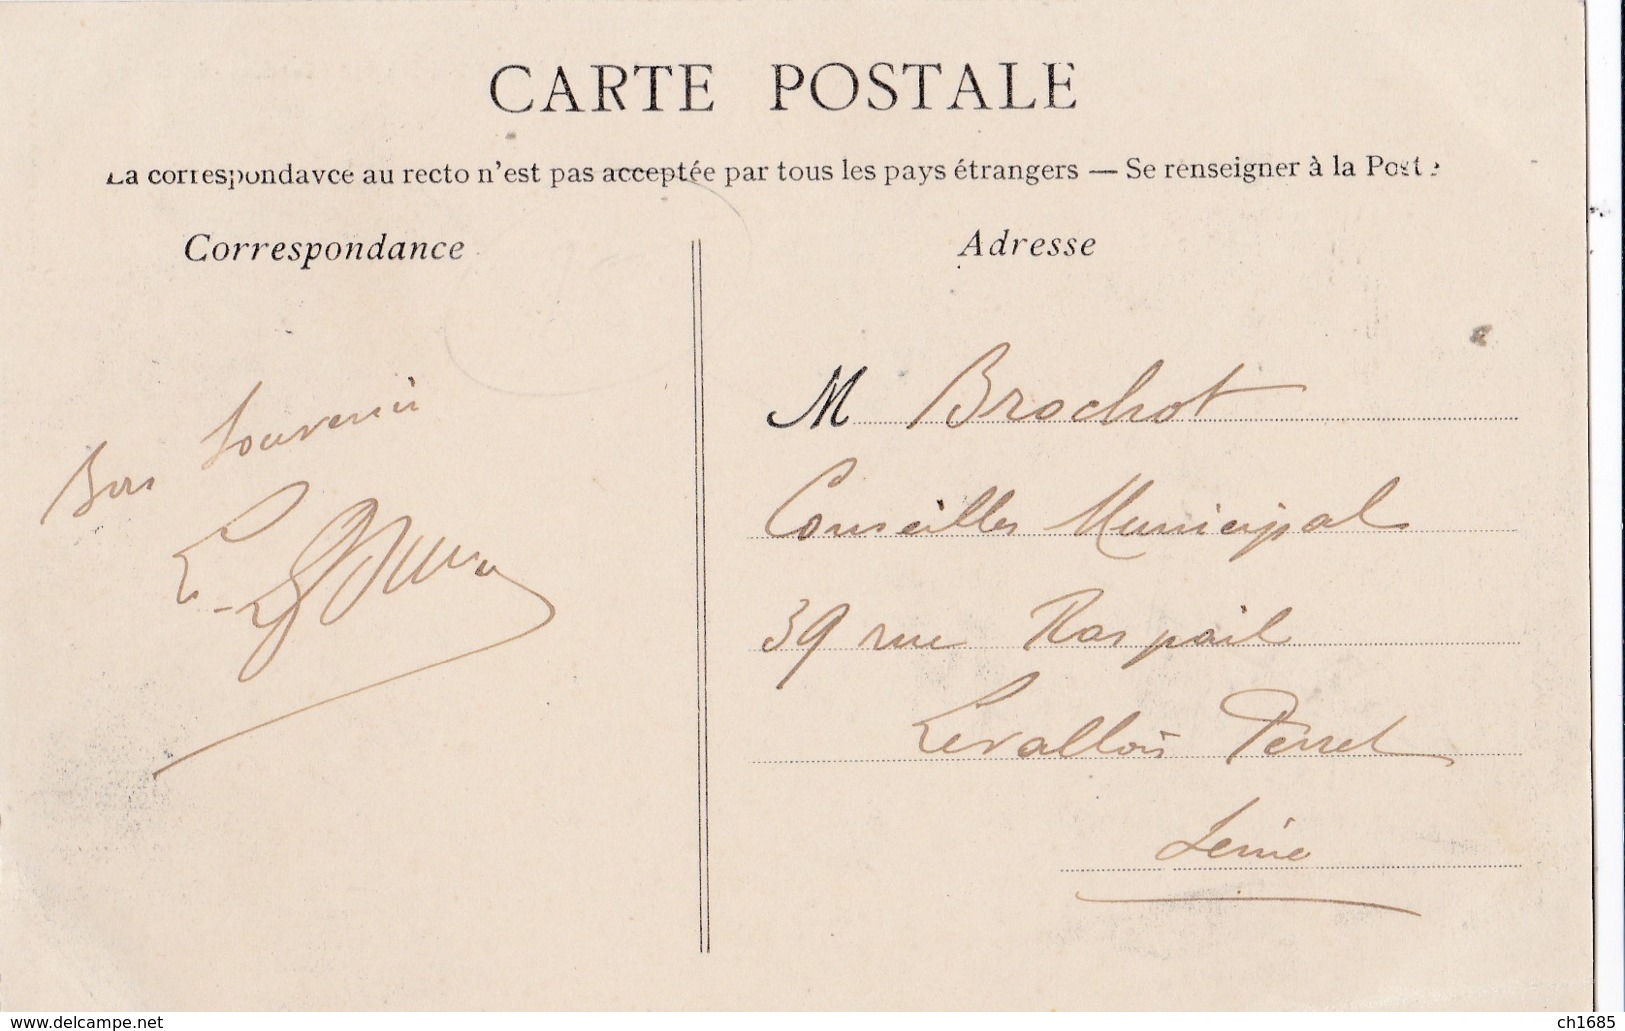 CARTE POSTALE
La correspondavce au recto n'est pas acceptée par tous les pays étrangers — Se renseigner à la Poste
Correspondance
Bon Souvenir
Adresse
M Brochot
Conseiller Municipal
39 rue Raspail
Levallois Perret
Seine
www.delcampe.net
ch1685